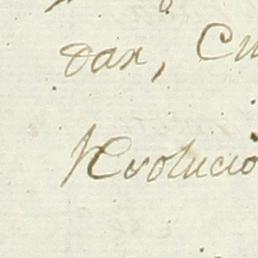 dax, Cu
Revolució